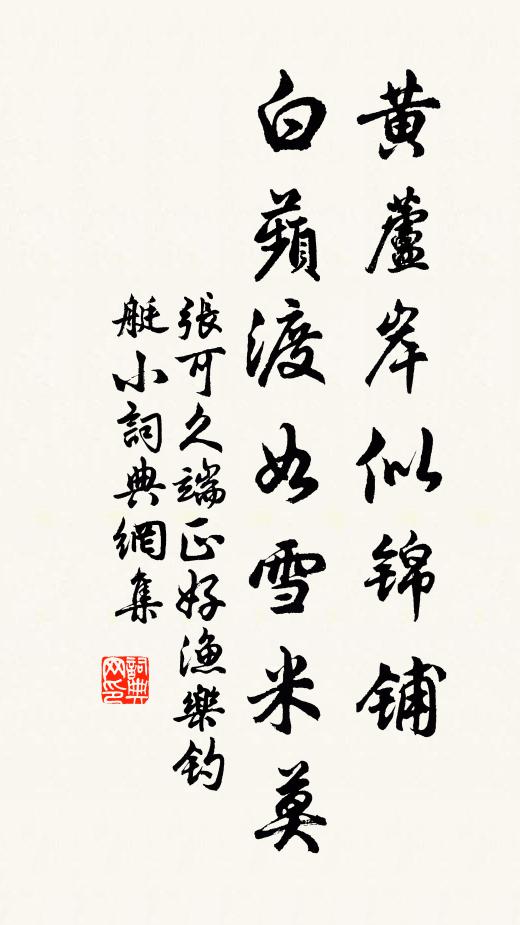 黃蘆岸似錦鋪
白蘋渡如雪米莫
張可久端正好漁樂釣
艇小詞典網集
詞典网印